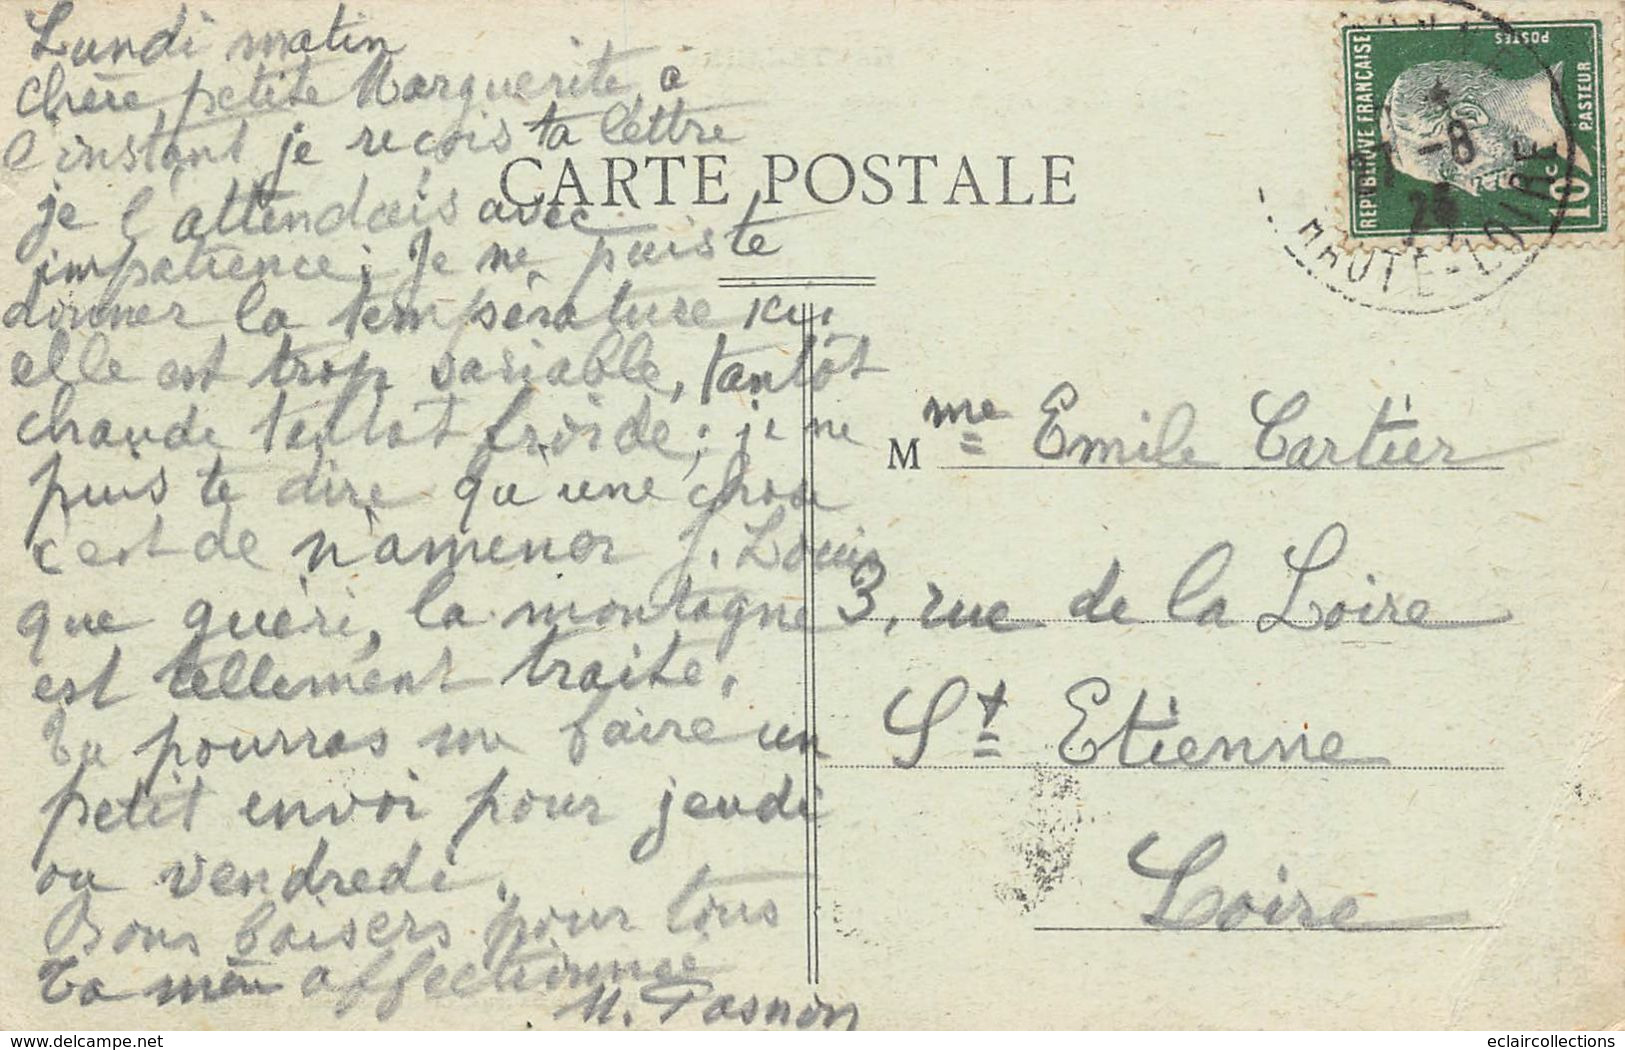 Lundi matin
Chère petite Marguerite a
l'instant je reçois ta lettre
je l'attendais avec
impatience; Je ne puis te
donner la température ici,
elle est trop variable, tantôt
chaude tantot froide; je ne
puis te dire qu'une chose
c'est de n'amener J. Louis
que guéri, la montagne
est tellement traite.
Tu pourras me faire un
petit envoi pour jeudi
ou vendredi.
Bons baisers pour tous
Ta mère affectionnée
M.
CARTE POSTALE
REPUBLIQUE FRANÇAISE
POSTES
PASTEUR
10c
-8
HAUTE-LOIRE
M me Emile Cartier
3, rue de la Loire
St Etienne
Loire
eclaircollections